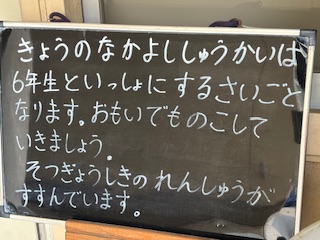 きょうのなかよししゅうかいは
6年生といっしょにするさいごと
なります。おもいでものこして
いきましょう。
そつぎょうしきのれんしゅうが
すすんでいます。